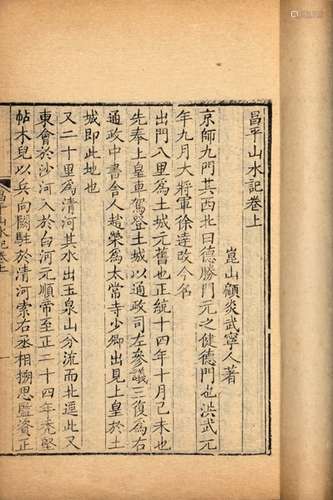 昌平山水記卷上
崑山顧炎武寧人著
京師九門其西北曰德勝門元之健德門也洪武元
年九月大將軍徐達改今名
出門八里為土城元舊也正統十四年十月己未也
先奉上皇車駕登土城以通政司左參議王復為右
通政中書舍人趙榮為太常寺少卿出見上皇於土
城即此地也
又二十里為清河其水出玉泉山分流而北逕此又
東會於沙河入於白河元順帝至正二十四年禿堅
帖木兒以兵向闕駐於清河索右丞相搠思監資正
昌平山水記卷上